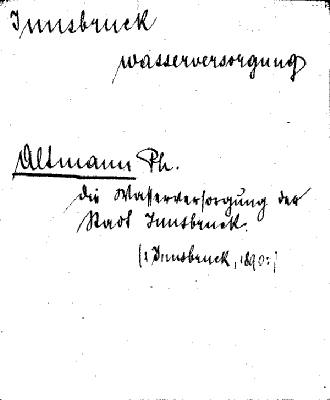 Innsbruck
Wasserversorgung
Altmann Ph.
Die Wasserversorgung der
Stadt Innsbruck.
(: Innsbruck, 1890:)